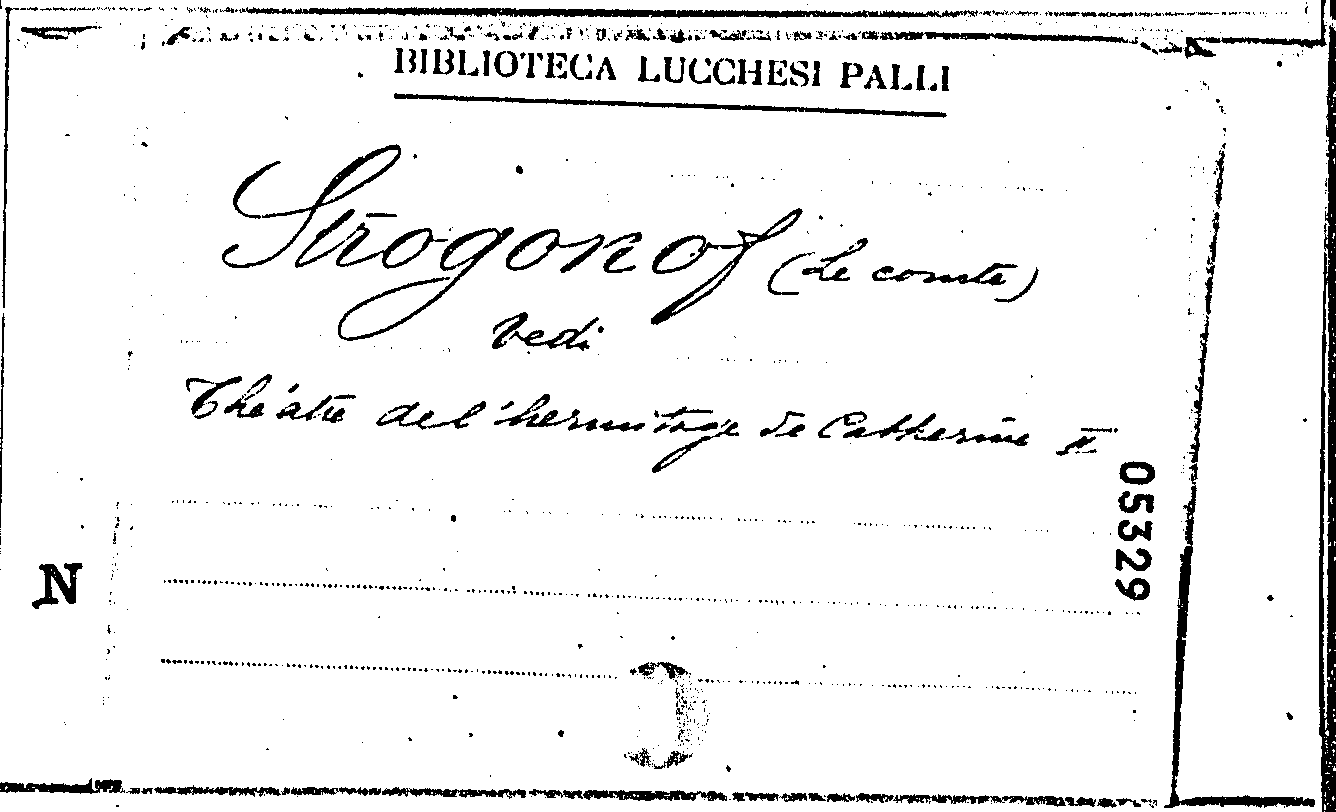 BIBLIOTECA LUCCHESI PALLI
Strogonof (Le comte)
Vedi
Théâtre de l'hermitage de Catherine II
05329
N